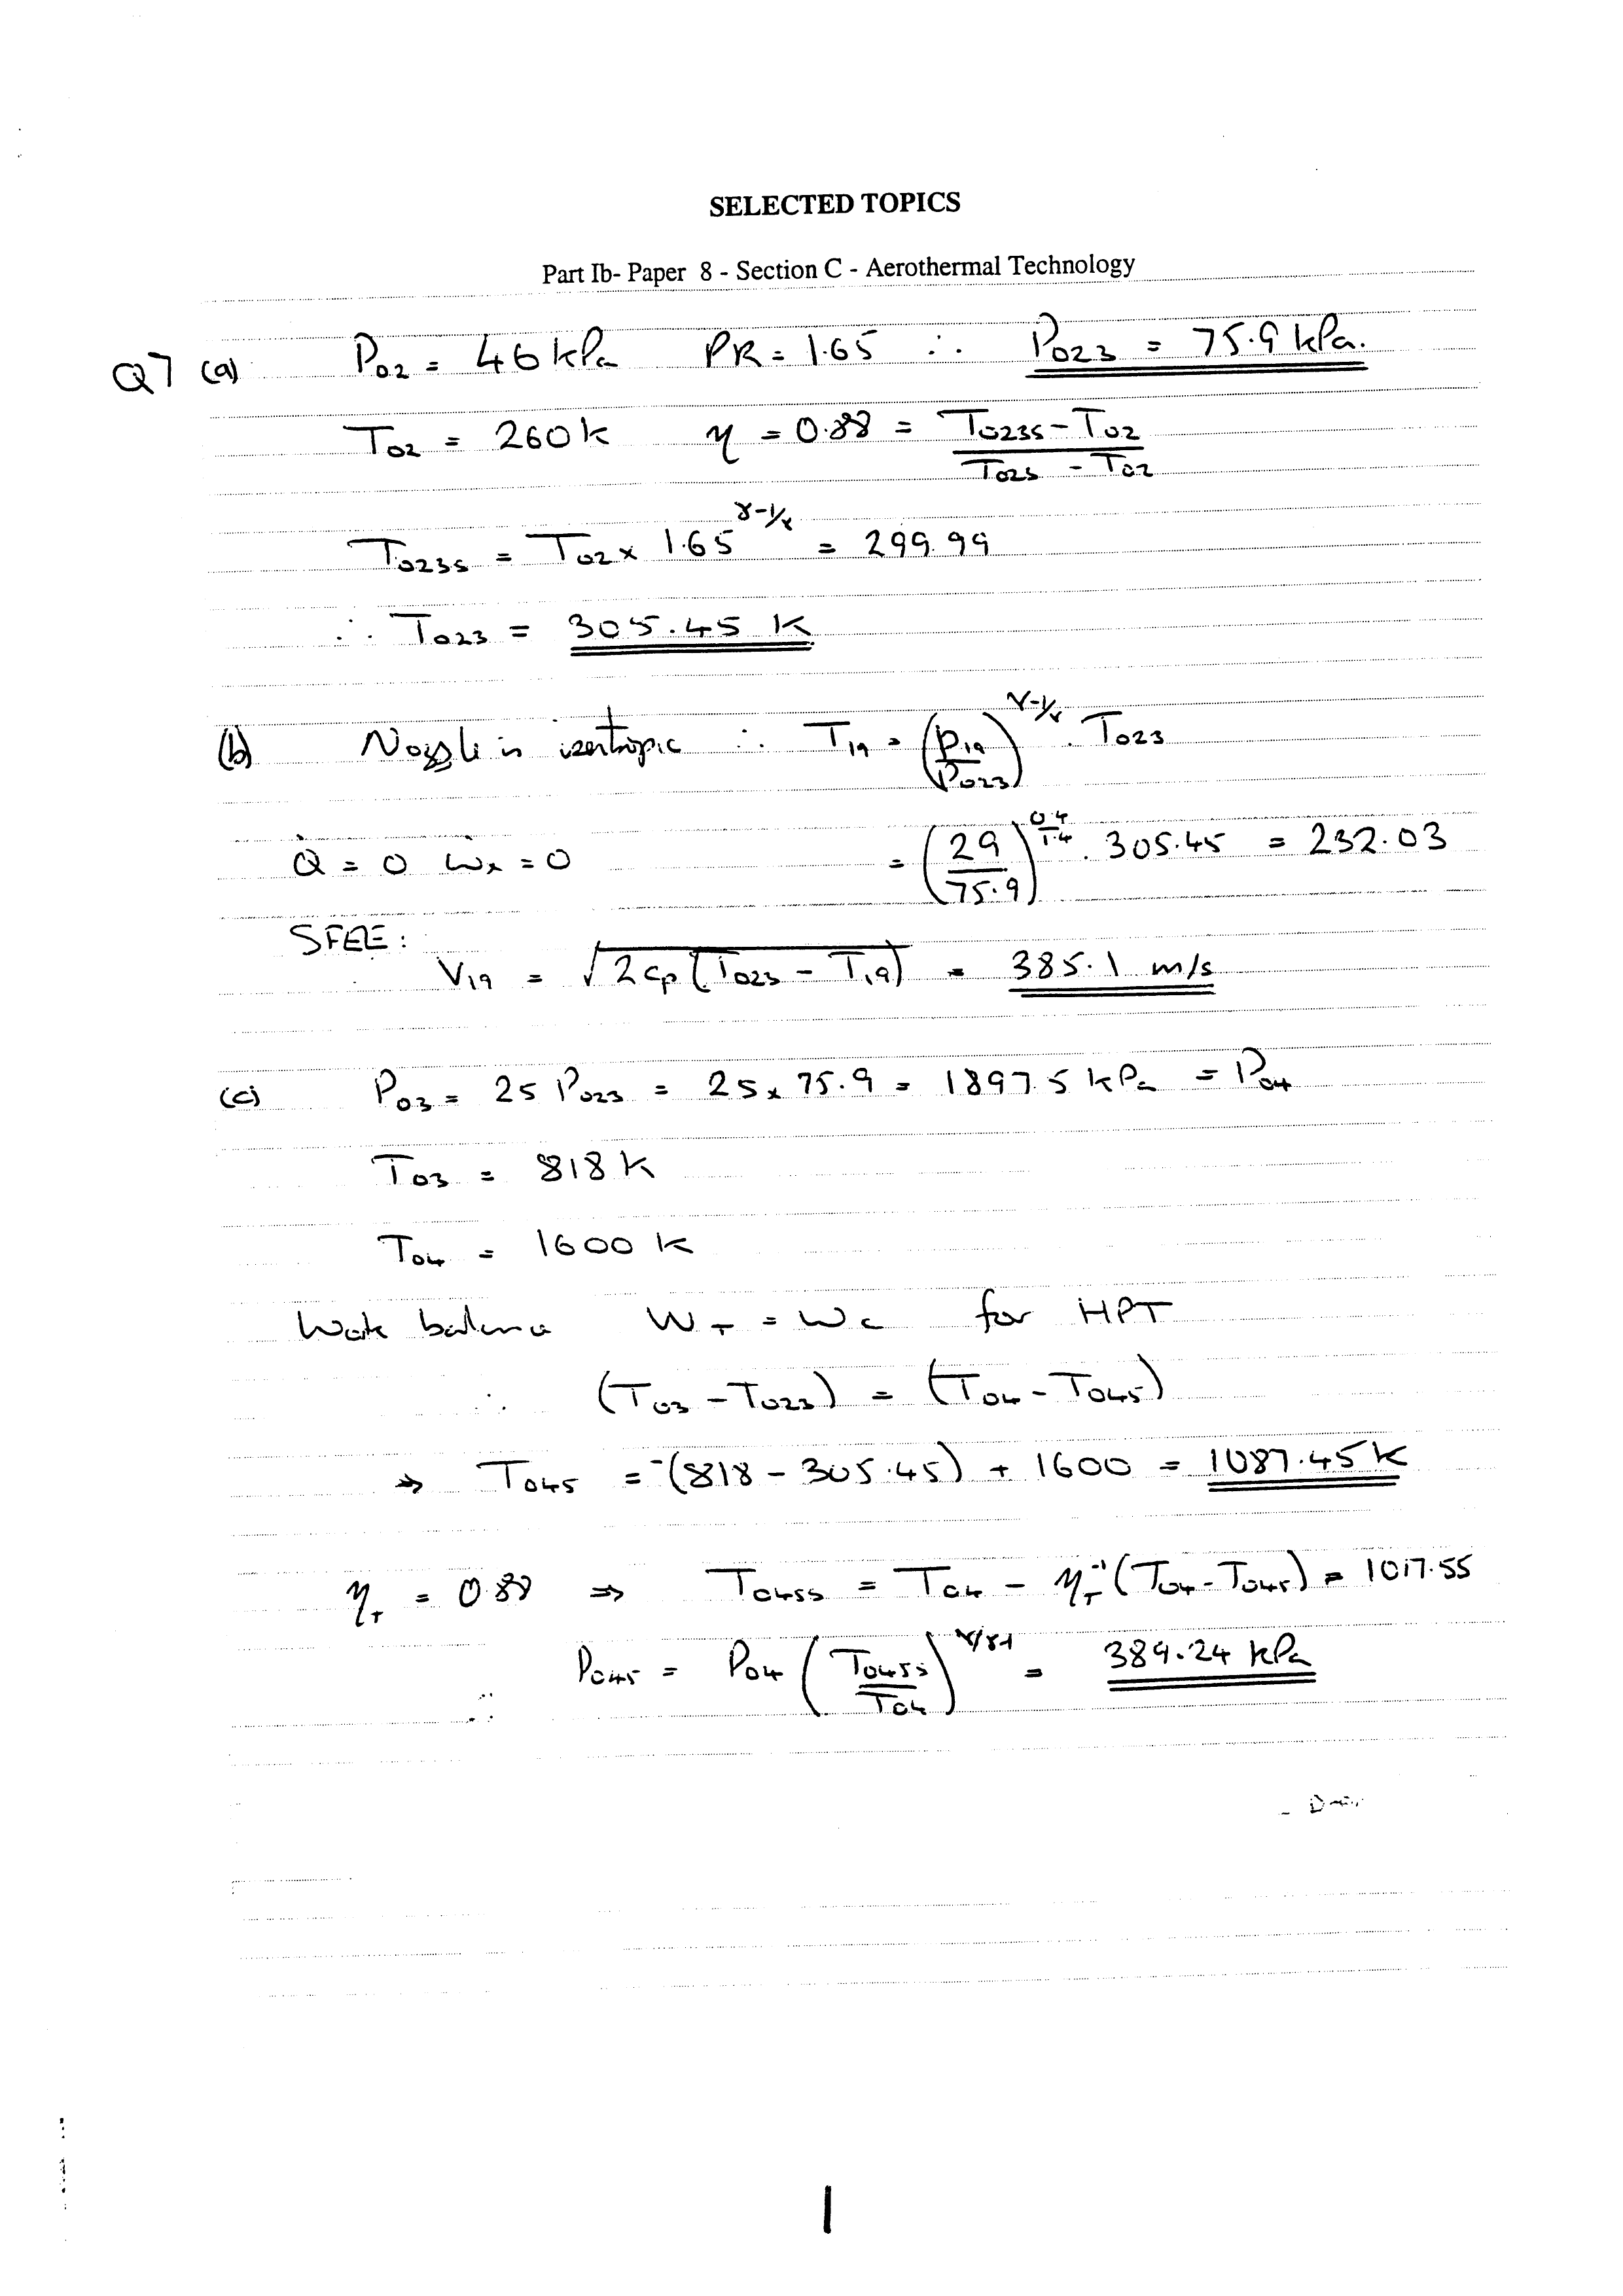 SELECTED TOPICS
Part Ib- Paper 8 - Section C - Aerothermal Technology
Q7 (a) P02 = 46 kPa PR = 1.65 ∴ P023 = 75.9 kPa.
T02 = 260 K η = 0.88 = (T023s - T02)/(T023 - T02)
T023s = T02 × 1.65^(γ-1/γ) = 299.99
∴ T023 = 305.45 K
(b) Nozzle is isentropic ∴ T19 = (P19/P023)^(γ-1/γ) . T023
Q = 0 Wx = 0 = (29/75.9)^(0.4/1.4) . 305.45 = 232.03
SFEE :
V19 = √(2cp(T023 - T19)) = 385.1 m/s
(c) P03 = 25 P023 = 25 × 75.9 = 1897.5 kPa = P04
T03 = 818 K
T04 = 1600 K
Work balance WT = Wc for HPT
∴ (T03 - T023) = (T04 - T045)
⇒ T045 = -(818 - 305.45) + 1600 = 1087.45 K
ηT = 0.88 ⇒ T045s = T04 - ηT^-1 (T04 - T045) = 1017.55
∴ P045 = P04 (T045s/T04)^(γ/γ-1) = 389.24 kPa
1